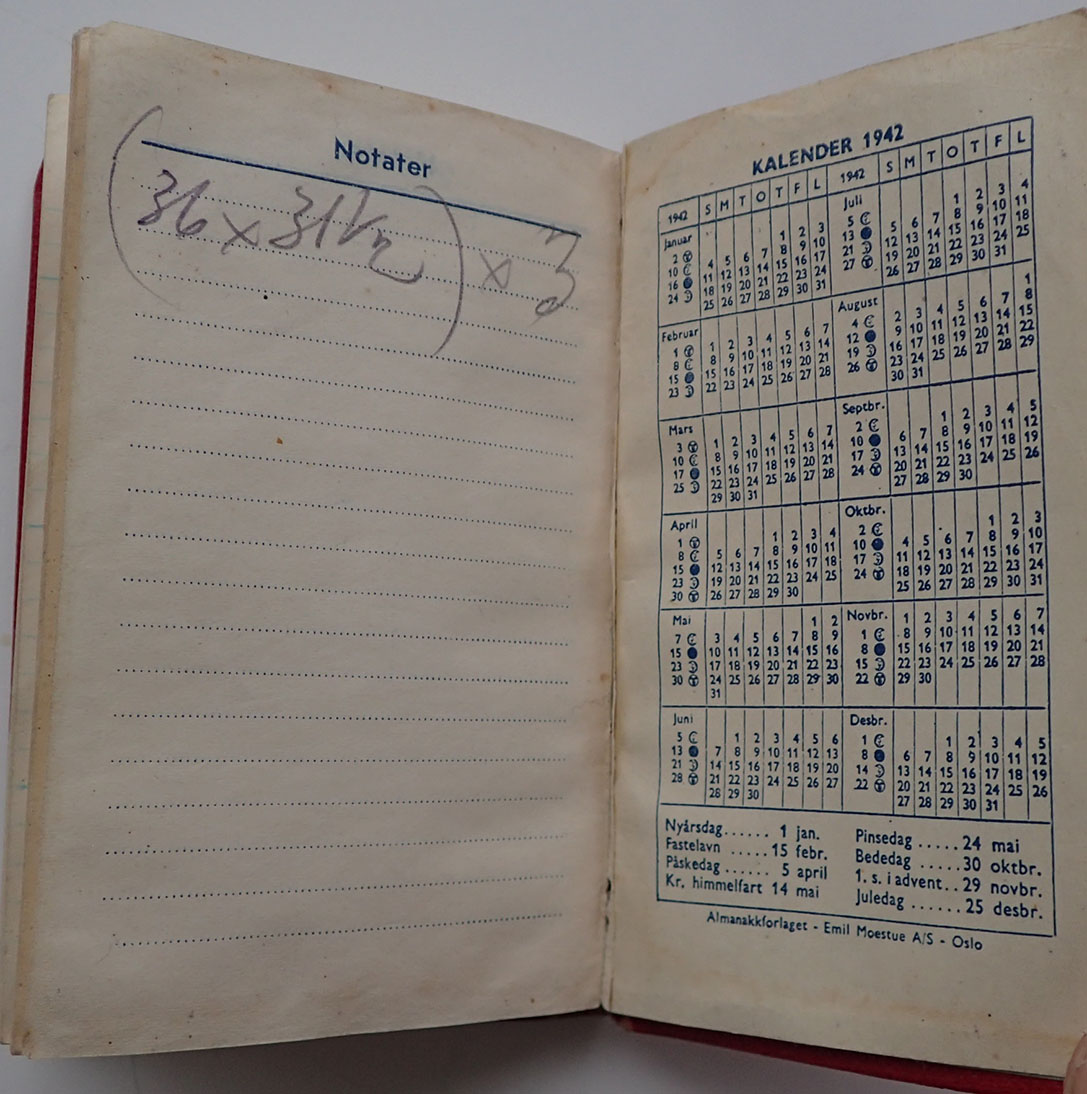 Notater
(36 x 31½) x 3
KALENDER 1942
1942 S M T O T F L
Januar
1 2 3
2 4 5 6 7 8 9 10
10 11 12 13 14 15 16 17
16 18 19 20 21 22 23 24
24 25 26 27 28 29 30 31
Februar
1 1 2 3 4 5 6 7
8 8 9 10 11 12 13 14
15 15 16 17 18 19 20 21
23 22 23 24 25 26 27 28
Mars
3 1 2 3 4 5 6 7
10 8 9 10 11 12 13 14
17 15 16 17 18 19 20 21
25 22 23 24 25 26 27 28
29 30 31
April
1 1 2 3 4
8 5 6 7 8 9 10 11
15 12 13 14 15 16 17 18
23 19 20 21 22 23 24 25
30 26 27 28 29 30
Mai 1 2
7 3 4 5 6 7 8 9
15 10 11 12 13 14 15 16
23 17 18 19 20 21 22 23
30 24 25 26 27 28 29 30
31
Juni
5 1 2 3 4 5 6
13 7 8 9 10 11 12 13
21 14 15 16 17 18 19 20
28 21 22 23 24 25 26 27
28 29 30
1942 S M T O T F L
Juli
5 1 2 3 4
13 5 6 7 8 9 10 11
21 12 13 14 15 16 17 18
27 19 20 21 22 23 24 25
26 27 28 29 30 31
August 1
4 2 3 4 5 6 7 8
12 9 10 11 12 13 14 15
19 16 17 18 19 20 21 22
26 23 24 25 26 27 28 29
30 31
Septbr.
2 1 2 3 4 5
10 6 7 8 9 10 11 12
17 13 14 15 16 17 18 19
24 20 21 22 23 24 25 26
27 28 29 30
Oktbr.
2 1 2 3
10 4 5 6 7 8 9 10
17 11 12 13 14 15 16 17
24 18 19 20 21 22 23 24
25 26 27 28 29 30 31
Novbr. 1 2 3 4 5 6 7
1 8 9 10 11 12 13 14
8 15 16 17 18 19 20 21
15 22 23 24 25 26 27 28
22 29 30
Desbr.
1 1 2 3 4 5
8 6 7 8 9 10 11 12
14 13 14 15 16 17 18 19
22 20 21 22 23 24 25 26
27 28 29 30 31
Nyårsdag...... 1 jan.
Fastelavn ..... 15 febr.
Påskedag ...... 5 april
Kr. himmelfart 14 mai
Pinsedag ..... 24 mai
Bededag ..... 30 oktbr.
1. s. i advent.. 29 novbr.
Juledag ...... 25 desbr.
Almanakkforlaget - Emil Moestue A/S - Oslo